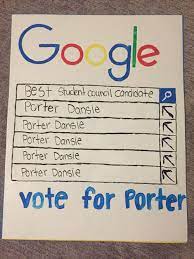 Google
Best student council candidate
Porter Dansie
Porter Dansie
Porter Dansie
Porter Dansie
Porter Dansie
vote for Porter